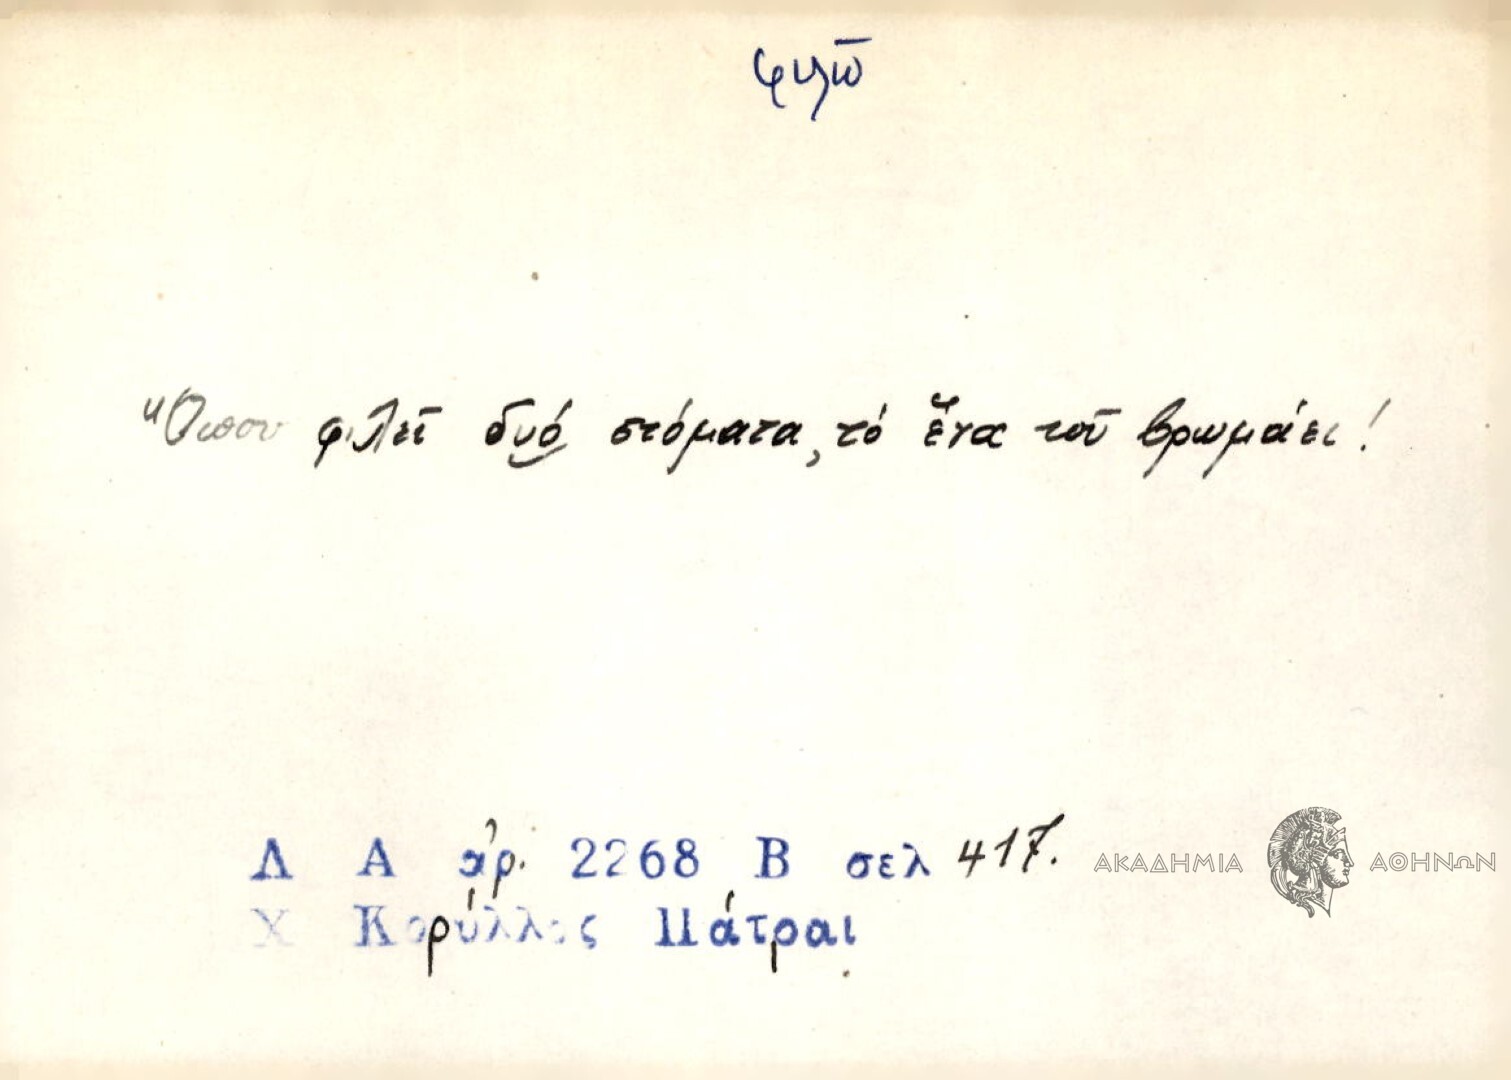 φιλῶ
Ὅπου φιλεῖ δυό στόματα, τό ἕνα τοῦ βρωμάει!
Λ Α ἀρ. 2268 Β σελ 417.
ΑΚΑΔΗΜΙΑ ΑΘΗΝΩΝ
Χ Κορύλλος Πάτραι